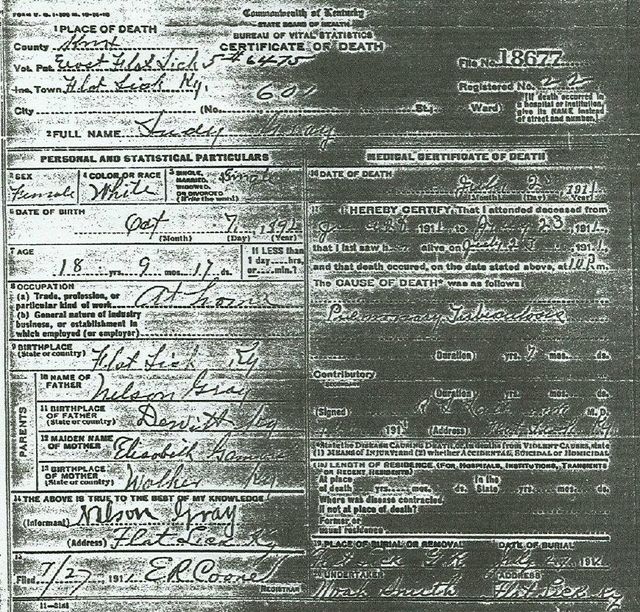 Commonwealth of Kentucky
STATE BOARD OF HEALTH
BUREAU OF VITAL STATISTICS
CERTIFICATE OF DEATH
1 PLACE OF DEATH
County
Vot. Pct. Flat Lick 5 # 6475
Inc. Town Flat Lick Ky
City (No. St.; Ward)
File No. 18677
Registered No. 22
[If death occurred in a hospital or institution, give its NAME instead of street and number.]
601
2 FULL NAME Gray
PERSONAL AND STATISTICAL PARTICULARS
3 SEX
Female
4 COLOR OR RACE
White
5 SINGLE, MARRIED, WIDOWED, OR DIVORCED (Write the word)
6 DATE OF BIRTH
Oct 7, 1892
(Month) (Day) (Year)
7 AGE
18 yrs. 9 mos. 17 ds.
If LESS than 1 day hrs. or min.?
8 OCCUPATION
(a) Trade, profession, or particular kind of work At home
(b) General nature of industry business, or establishment in which employed (or employer)
9 BIRTHPLACE
(State or country) Flat Lick Ky
PARENTS
10 NAME OF FATHER Nelson Gray
11 BIRTHPLACE OF FATHER (State or country) Dewitt Ky
12 MAIDEN NAME OF MOTHER Elisabeth
13 BIRTHPLACE OF MOTHER (State or country) Walker Ky
14 THE ABOVE IS TRUE TO THE BEST OF MY KNOWLEDGE
(Informant) Nilson Gray
(Address) Flat Lick Ky
15
Filed 7/27 1911 E R Coone
REGISTRAR
11-3151
MEDICAL CERTIFICATE OF DEATH
16 DATE OF DEATH
1911
(Month) (Day) (Year)
17 I HEREBY CERTIFY, That I attended deceased from
1911, to July 23, 1911,
that I last saw h alive on July 23, 1911,
and that death occured, on the date stated above, at 10 P m.
The CAUSE OF DEATH* was as follows
Pulmonary Tuberculosis
Duration yrs. mos. ds.
Contributory
Duration yrs. mos. ds.
(Signed) M. D.
191 (Address)
*State the DISEASE CAUSING DEATH, or, in deaths from VIOLENT CAUSES, state (1) MEANS OF INJURY; and (2) whether ACCIDENTAL, SUICIDAL or HOMICIDAL
18 LENGTH OF RESIDENCE (FOR HOSPITALS, INSTITUTIONS, TRANSIENTS OR RECENT RESIDENTS)
At place of death yrs. mos. ds. In the State yrs. mos. ds.
Where was disease contracted if not at place of death?
Former or usual residence
19 PLACE OF BURIAL OR REMOVAL DATE OF BURIAL
20 UNDERTAKER ADDRESS
Smith Flat Lick Ky